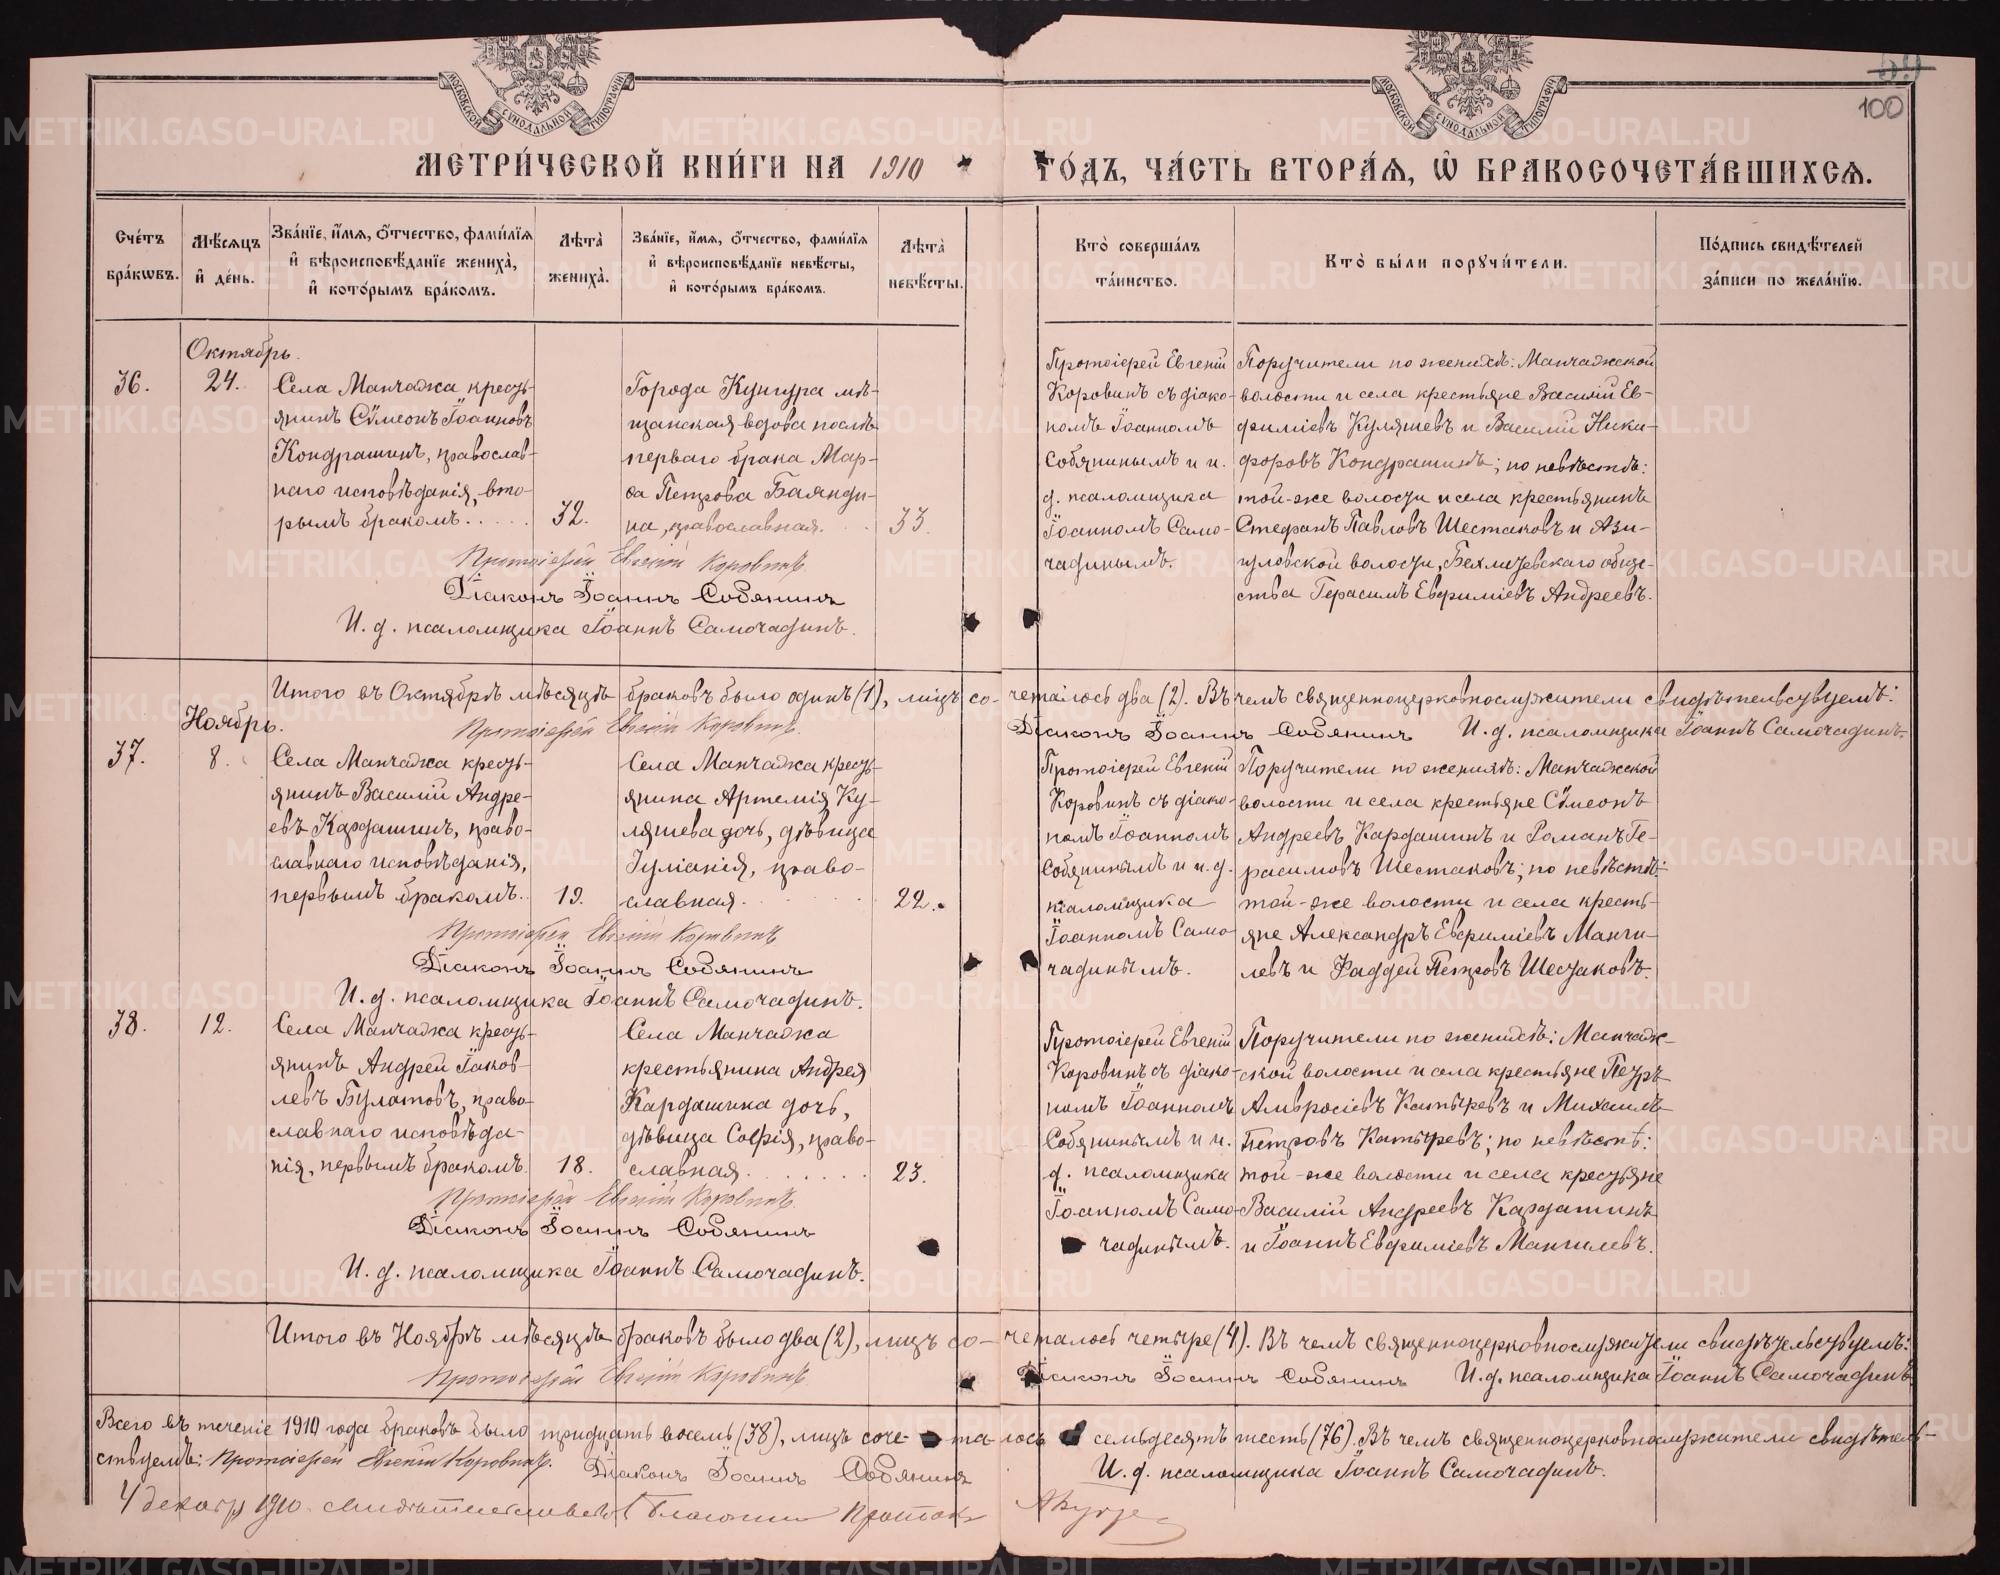 МОСКОВСКОЙ СУНОДАЛЬНОЙ ТИПОГРАФІИ
МОСКОВСКОЙ СУНОДАЛЬНОЙ ТИПОГРАФІИ
59
100
МЕТРИ́ЧЕСКОЙ КНИ́ГИ НА 1910
ГО́ДЪ, ЧА́СТЬ ВТОРА́Ѧ, Ѡ҆ БРАКОСОЧЕТА́ВШИХСѦ.
Сче́тъ бра́кѡвъ.
Мѣ́сѧцъ и҆ де́нь.
Зва́нїе, и҆́мѧ, ѻ҆́тчество, фами́лїѧ и҆ вѣроисповѣ́данїе жениха̀, и҆ кото́рымъ бра́комъ.
Лѣ́та̀ жениха̀.
Зва́нїе, и҆́мѧ, ѻ҆́тчество, фами́лїѧ и҆ вѣроисповѣ́данїе невѣ́сты, и҆ кото́рымъ бра́комъ.
Лѣ́та̀ невѣ́сты.
Кто̀ соверша́лъ та́инство.
Кто̀ бы́ли порꙋчи́тели.
По́дпись свидѣ́телей за́писи по жела́нїю.
Октябрь.
36.
24.
Села Манчажа кресть-
янинъ Сѵмеонъ Іоанновъ
Кондрашинъ, православ-
наго исповѣданія, вто-
рымъ бракомъ.....
32.
Города Кунгура мѣ-
щанская вдова послѣ
перваго брака Мар-
ѳа Петрова Баянди-
на, православная.
33.
Протоіерей Евгеній
Коровинъ съ діако-
номъ Іоанномъ
Собянинымъ и и.
д. псаломщика
Іоанномъ Само-
чадинымъ.
Поручители по женихѣ: Манчажской
волости и села крестьяне Василій Ев-
фиміевъ Куляшевъ и Василій Ники-
форовъ Кондрашинъ; по невѣстѣ:
той-же волости и села крестьянинъ
Стефанъ Павловъ Шестаковъ и Ази-
гуловской волости, Бехлизевскаго обще-
ства Герасимъ Евфиміевъ Андреевъ.
Протоіерей Евгеній Коровинъ.
Діаконъ Іоаннъ Собянинъ
И. д. псаломщика Іоаннъ Самочадинъ.
Итого въ Октябрѣ мѣсяцѣ браковъ было одинъ (1), лицъ со-четалось два (2). Въ чемъ священноцерковнослужители свидѣтельствуемъ:
Протоіерей Евгеній Коровинъ. Діаконъ Іоаннъ Собянинъ И. д. псаломщика Іоаннъ Самочадинъ.
Ноябрь.
37.
8.
Села Манчажа кресть-
янинъ Василій Андре-
евъ Кардашинъ, право-
славнаго исповѣданія,
первымъ бракомъ.
19.
Села Манчажа кресть-
янина Артемія Ку-
ляшева дочь, дѣвица
Іуліанія, право-
славная.
22.
Протоіерей Евгеній
Коровинъ съ діако-
номъ Іоанномъ
Собянинымъ и и. д.
псаломщика
Іоанномъ Само
чадинымъ.
Поручители по женихѣ: Манчажской
волости и села крестьяне Сѵмеонъ
Андреевъ Кардашинъ и Романъ Ге-
расимовъ Шестаковъ; по невѣстѣ:
той-же волости и села кресть-
яне Александръ Евфиміевъ Манги-
левъ и Фаддей Петровъ Шестаковъ.
Протоіерей Евгеній Коровинъ
Діаконъ Іоаннъ Собянинъ
И. д. псаломщика Іоаннъ Самочадинъ.
38.
12.
Села Манчажа кресть-
янинъ Андрей Іаков-
левъ Булатовъ, право-
славнаго исповѣда-
нія, первымъ бракомъ.
18.
Села Манчажа
крестьянина Андрея
Кардашина дочь,
дѣвица Софія, право-
славная.......
23.
Протоіерей Евгеній
Коровинъ съ діако-
номъ Іоанномъ
Собянинымъ и и.
д. псаломщика
Іоанномъ Само-
чадинымъ.
Поручители по женихѣ: Манчаж-
ской волости и села крестьяне Петръ
Амвросіевъ Катыревъ и Михаилъ
Петровъ Катыревъ; по невѣстѣ:
той-же волости и села крестьяне
Василій Андреевъ Кардашинъ
и Іоаннъ Евфиміевъ Мангилевъ.
Протоіерей Евгеній Коровинъ.
Діаконъ Іоаннъ Собянинъ
И. д. псаломщика Іоаннъ Самочадинъ.
Итого въ Ноябрѣ мѣсяцѣ браковъ было два (2), лицъ со-четалось четыре (4). Въ чемъ священноцерковнослужители свидѣтельствуемъ:
Протоіерей Евгеній Коровинъ. Діаконъ Іоаннъ Собянинъ И. д. псаломщика Іоаннъ Самочадинъ.
Всего въ теченіе 1910 года браковъ было тридцать восемь (38), лицъ соче-талось семьдесятъ шесть (76). Въ чемъ священноцерковнослужители свидѣтель-
ствуемъ: Протоіерей Евгеній Коровинъ. Діаконъ Іоаннъ Собянинъ И. д. псаломщика Іоаннъ Самочадинъ.
4 декабр 1910.
METRIKI.GASO-URAL.RU